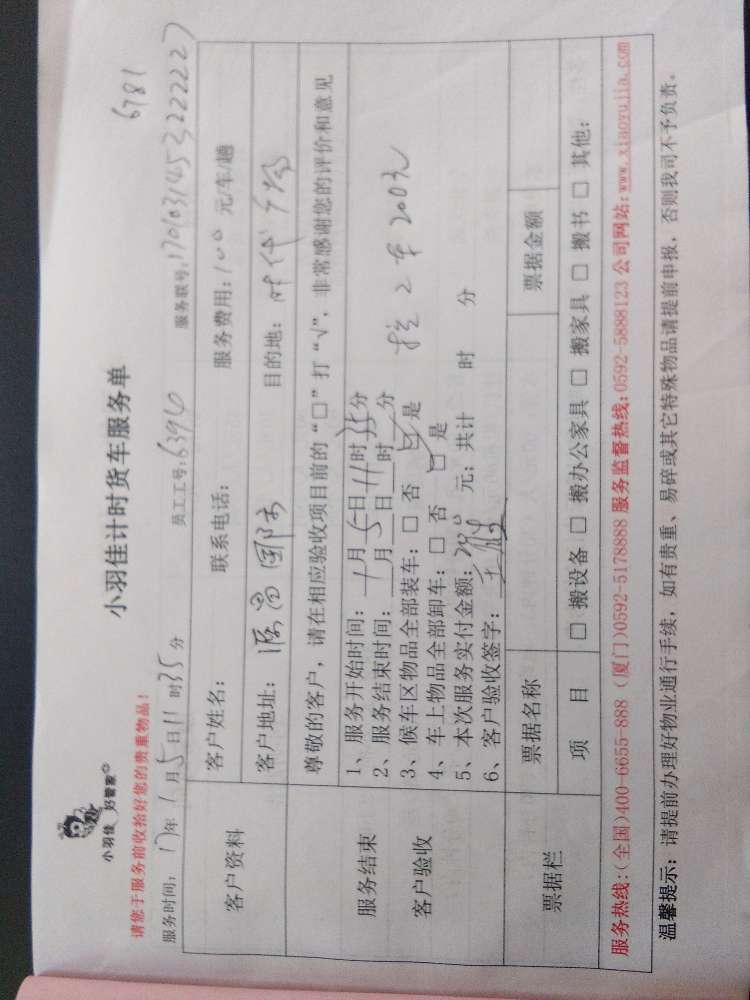 小羽佳 好管家
小羽佳计时货车服务单
6781
请您于服务前收拾好您的贵重物品!
服务时间: 17年 1月5日11时35分 员工工号: 6396 服务联号: 17010314532222227
客户资料
客户姓名: 联系电话: 服务费用: 100 元/车/趟
客户地址: 源昌国际 目的地: 时代广场
服务结束
客户验收
尊敬的客户, 请在相应验收项目前的“□”打“√”, 非常感谢您的评价和意见
1、服务开始时间: 1月5日11时35分
2、服务结束时间: 1月5日11时 分
3、候车区物品全部装车: □ 否 □ 是 按2车200元
4、车上物品全部卸车: □ 否 □ 是
5、本次服务实付金额: 200 元; 共计 时 分
6、客户验收签字:
票据栏
票据名称 票据金额
项 目 □ 搬设备 □ 搬办公家具 □ 搬家具 □ 搬书 □ 其他:
服务热线:(全国)400-6655-888 (厦门)0592-5178888 服务监督热线:0592-5888123 公司网站:www.xiaoyujia.com
温馨提示: 请提前办理好物业通行手续, 如有贵重、易碎或其它特殊物品请提前申报, 否则我司不予负责。